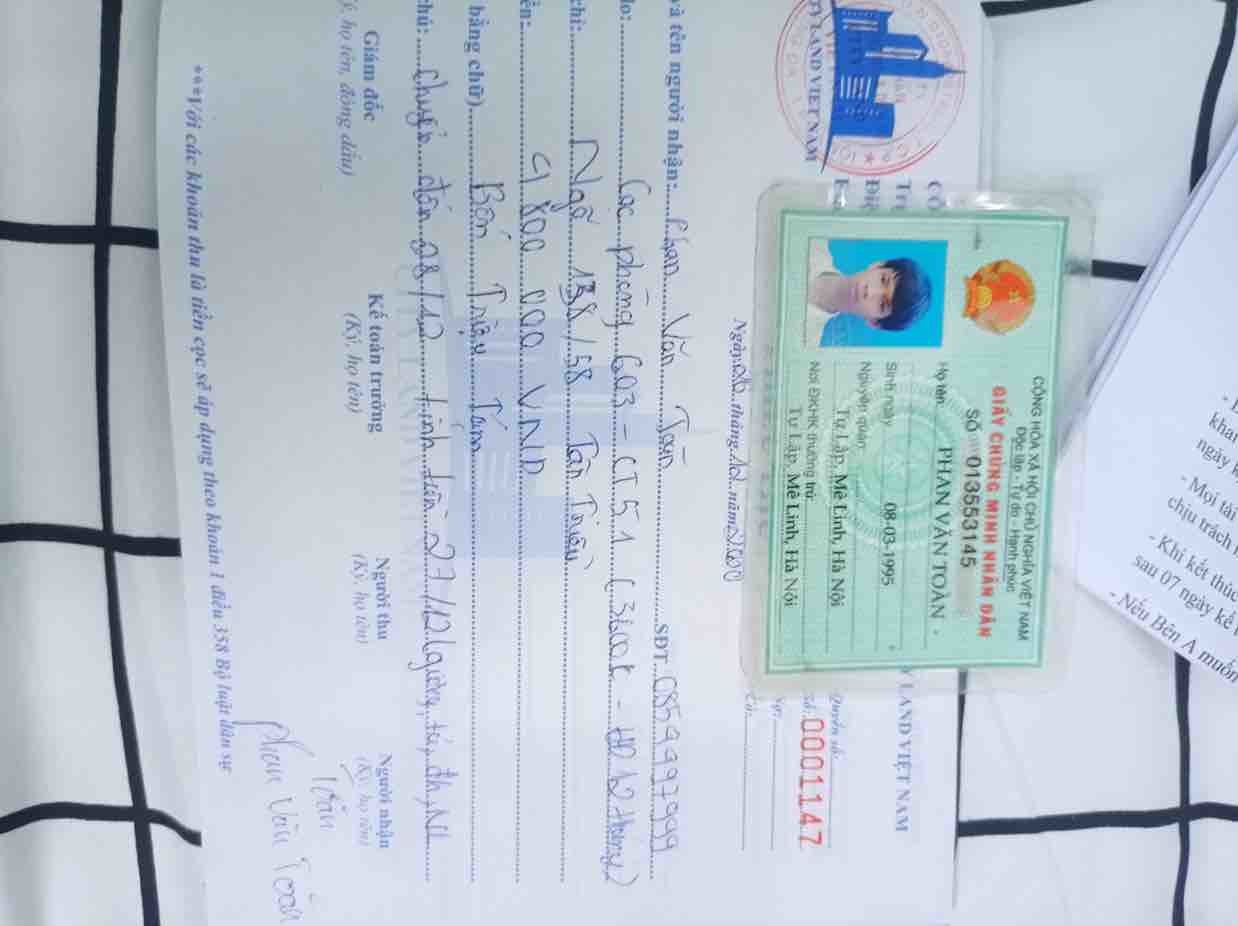 CỘNG HÒA XÃ HỘI CHỦ NGHĨA VIỆT NAM
Độc lập - Tự do - Hạnh phúc
GIẤY CHỨNG MINH NHÂN DÂN
SỐ 013553145
Họ tên PHAN VĂN TOÀN
Sinh ngày 08-03-1995
Nguyên quán
Tự Lập, Mê Linh, Hà Nội
Nơi ĐKHK thường trú
Tự Lập, Mê Linh, Hà Nội
Y LAND VIET NAM
Y LAND VIỆT NAM
CÔ
Quyển số:
0001147
Nợ:
Có:
Ngày 06 tháng 12 năm 2020
và tên người nhận: Phan Văn Toàn SĐT 0854997999
do: Cọc phòng 603 - CT51 ( 3 - HĐ 12 tháng)
chỉ: Ngõ 138/58 Tân Triều
ền: 4 800 000 VNĐ
bằng chữ) Bốn Triệu Tám
chú: chuyển đến 08/12 tính tiền 27/12 (giường, tủ, đh, NL
Giám đốc
ý, họ tên, đóng dấu)
Kế toán trưởng
(Ký, họ tên)
Người thu
(Ký, họ tên)
Người nhận
(Ký, họ tên)
Toàn
Phan Văn Toàn
***Với các khoản thu là tiền cọc sẽ áp dụng theo khoản 1 điều 358 Bộ luật dân sự
khai
ngày
- Mọi tài
chịu trách
- Khi kết thúc
sau 07 ngày kể
- Nếu Bên A muốn